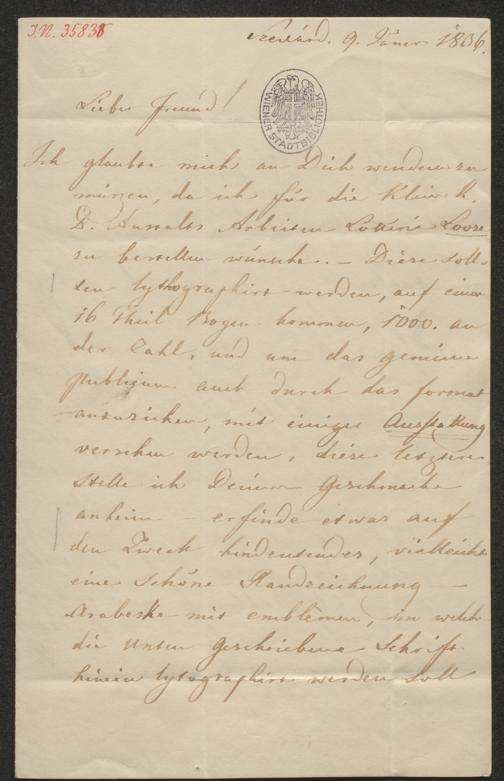 J.N. 35835
Szexárd. 9. Jäner 1836.
WIENER STADTBIBLIOTHEK
Lieber Freund!
Ich glaube mich an Dich wenden zu
müszen, da ich für die Klein K.
D. Anstalts Arbeiten Lotterie Loose
zu bestellen wünsche. – Diese soll-
ten lythographirt werden, auf einen
16 Theil Bogen kommen, 1000. an
der Zahl, und um das gemeine
publicum auch durch das format
anzuziehen, mit einiger Ausstattung
versehen werden, diese letztere
stelle ich Deinem Geschmacke
anheim – erfinde etwas auf
den Zweck hindeutendes, vielleicht
eine schöne Randzeichnung –
Arabeske mit emblêmen, in welche
die unten geschriebene Schrift
hinein lytographirt werden soll